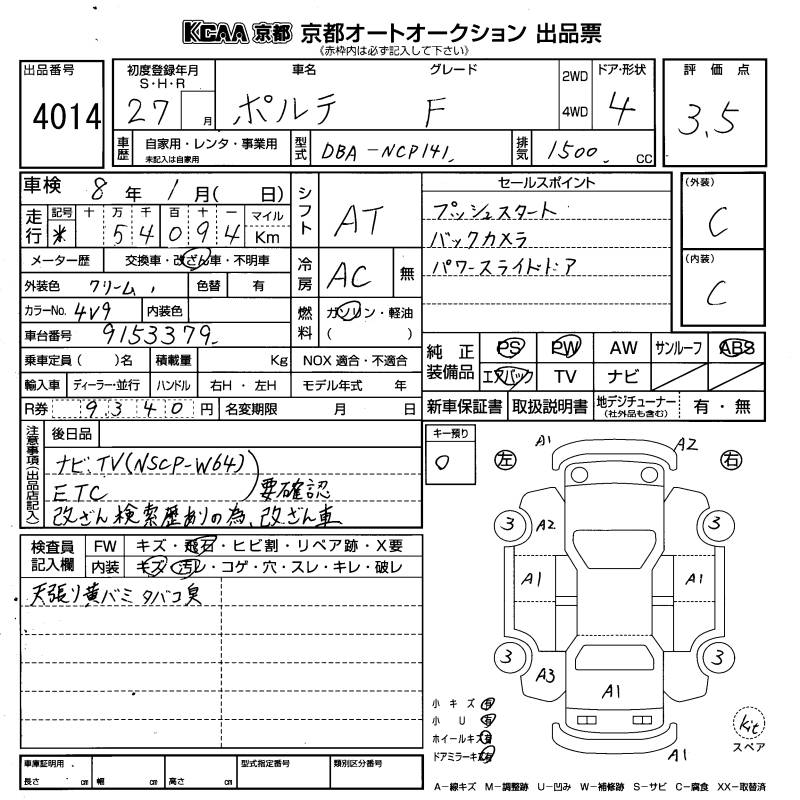 KCAA 京都 京都オートオークション 出品票
《赤枠内は必ず記入して下さい》
出品番号
4014
初度登録年月
S・H・R
27 月
車名
ポルテ
グレード
F
2WD
4WD
ドア・形状
4
評価点
3.5
車歴
自家用・レンタ・事業用
未記入は自家用
型式
DBA-NCP141
排気
1500 CC
車検 8年 1月( 日)
走行
記号 十 万 千 百 十 一 マイル
* 5 4 0 9 4 Km
メーター歴 交換車・改ざん車・不明車
外装色 クリーム 色替 有
カラーNo. 4V9 内装色
車台番号 9153379
乗車定員( )名 積載量 Kg
NOX 適合・不適合
輸入車 ディーラー・並行 ハンドル 右H・左H
モデル年式 年
R券 9340円 名変期限 月 日
シフト AT
冷房 AC 無
燃料 ガソリン・軽油
( )
セールスポイント
プッシュスタート
バックカメラ
パワースライドドア
(外装)
C
(内装)
C
純正装備品
PS PW AW サンルーフ ABS
エアバック TV ナビ
新車保証書 取扱説明書 地デジチューナー
(社外品も含む)
有・無
注意事項(出品店記入)
後日品
ナビ.TV(NSCP-W64)
ETC ) 要確認
改ざん検索歴ありの為、改ざん車
キー預り
0
検査員記入欄
FW キズ・飛石・ヒビ割・リペア跡・X要
内装 キズ・汚レ・コゲ・穴・スレ・キレ・破レ
天張り黄バミ タバコ臭
左 A1 A2 右
3 A2 3
A1 A1
3 A3 3
A1
A1
小キズ 有
小U 有
ホイールキズ 有
ドアミラーキズ 有
kit
スペア
車庫証明用
長さ cm 幅 cm 高さ cm
型式指定番号
類別区分番号
A-線キズ M-調整跡 U-凹み W-補修跡 S-サビ C-腐食 XX-取替済